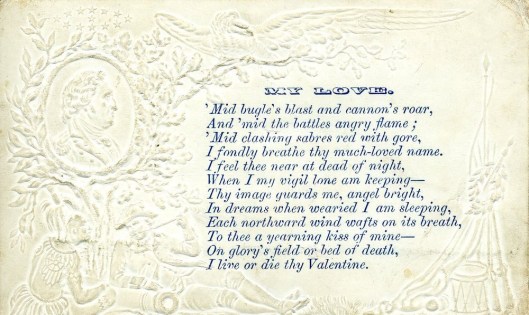 MY LOVE.
'Mid bugle's blast and cannon's roar,
And 'mid the battles angry flame ;
'Mid clashing sabres red with gore,
I fondly breathe thy much-loved name.
I feel thee near at dead of night,
When I my vigil lone am keeping—
Thy image guards me, angel bright,
In dreams when wearied I am sleeping,
Each northward wind wafts on its breath,
To thee a yearning kiss of mine—
On glory's field or bed of death,
I live or die thy Valentine.